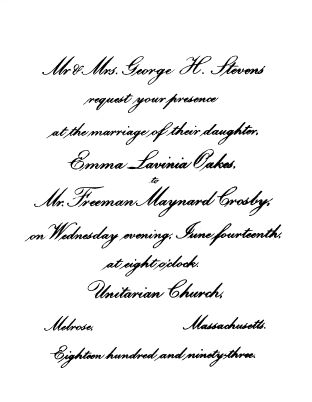 Mr & Mrs. George H. Stevens
request your presence
at the marriage of their daughter,
Emma Lavinia Oakes,
to
Mr. Freeman Maynard Crosby,
on Wednesday evening, June fourteenth,
at eight o'clock.
Unitarian Church,
Melrose, Massachusetts.
Eighteen hundred and ninety-three.